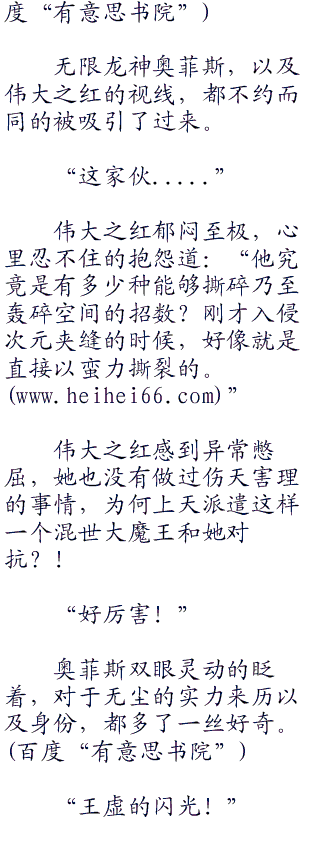 度“有意思书院”)
无限龙神奥菲斯，以及
伟大之红的视线，都不约而
同的被吸引了过来。
“这家伙.....”
伟大之红郁闷至极，心
里忍不住的抱怨道：“他究
竟是有多少种能够撕碎乃至
轰碎空间的招数？刚才入侵
次元夹缝的时候，好像就是
直接以蛮力撕裂的。
(www.heihei66.com)”
伟大之红感到异常憋
屈，她也没有做过伤天害理
的事情，为何上天派遣这样
一个混世大魔王和她对
抗？！
“好厉害！”
奥菲斯双眼灵动的眨
着，对于无尘的实力来历以
及身份，都多了一丝好奇。
(百度“有意思书院”)
“王虚的闪光！”